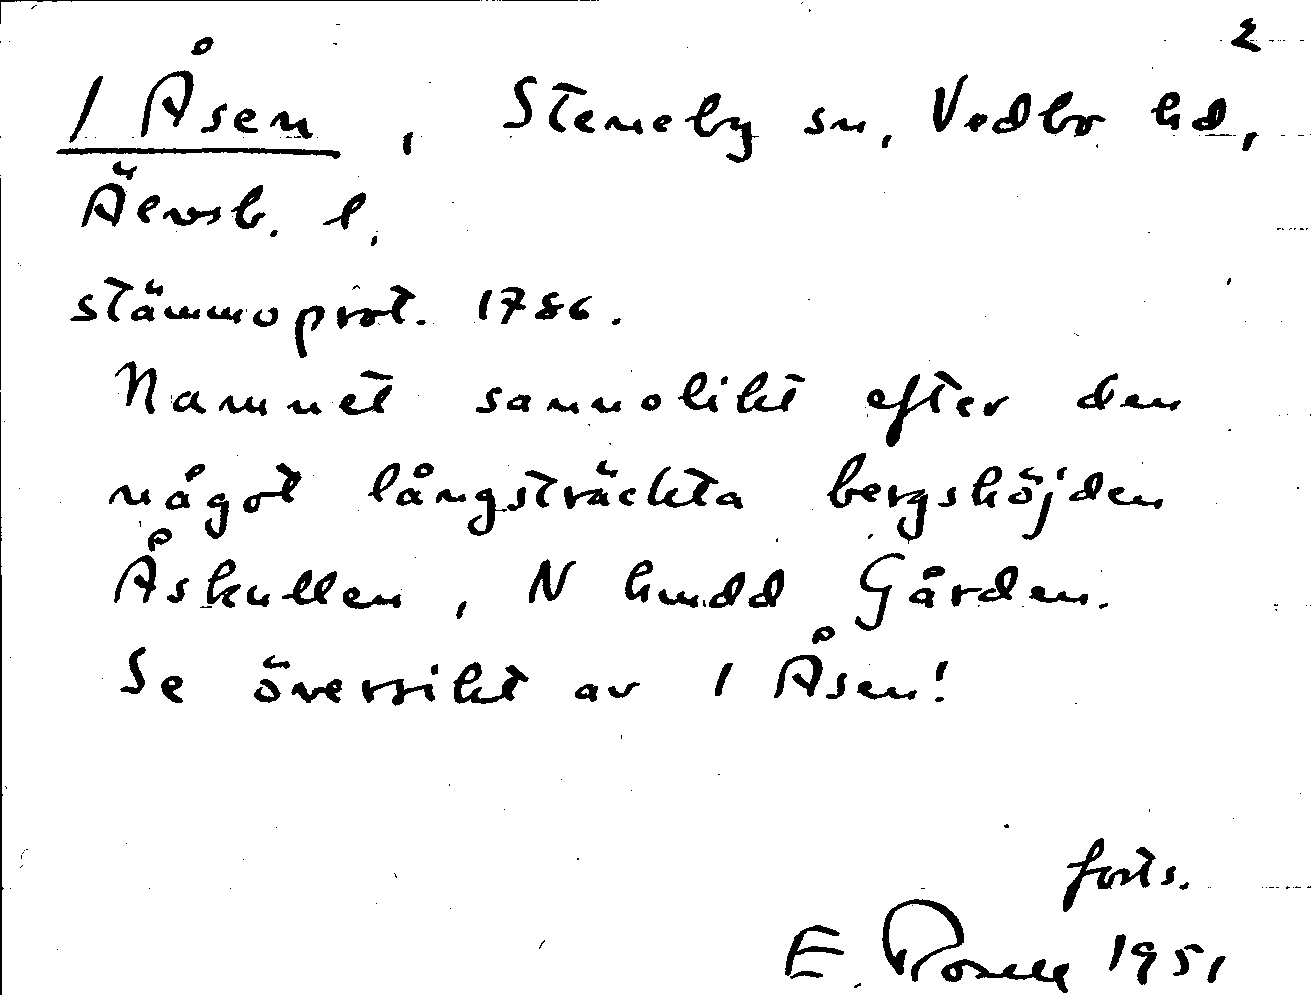 2
1 Åsen, Steneby sn, Vedbo hd,
Älvsb. l.
stämmoprot. 1786.
Namnet sannolikt efter den
något långsträckta bergshöjden
Åskullen, N huvudd Gården.
Se översikt av 1 Åsen!
forts.
E. Rosell 1951